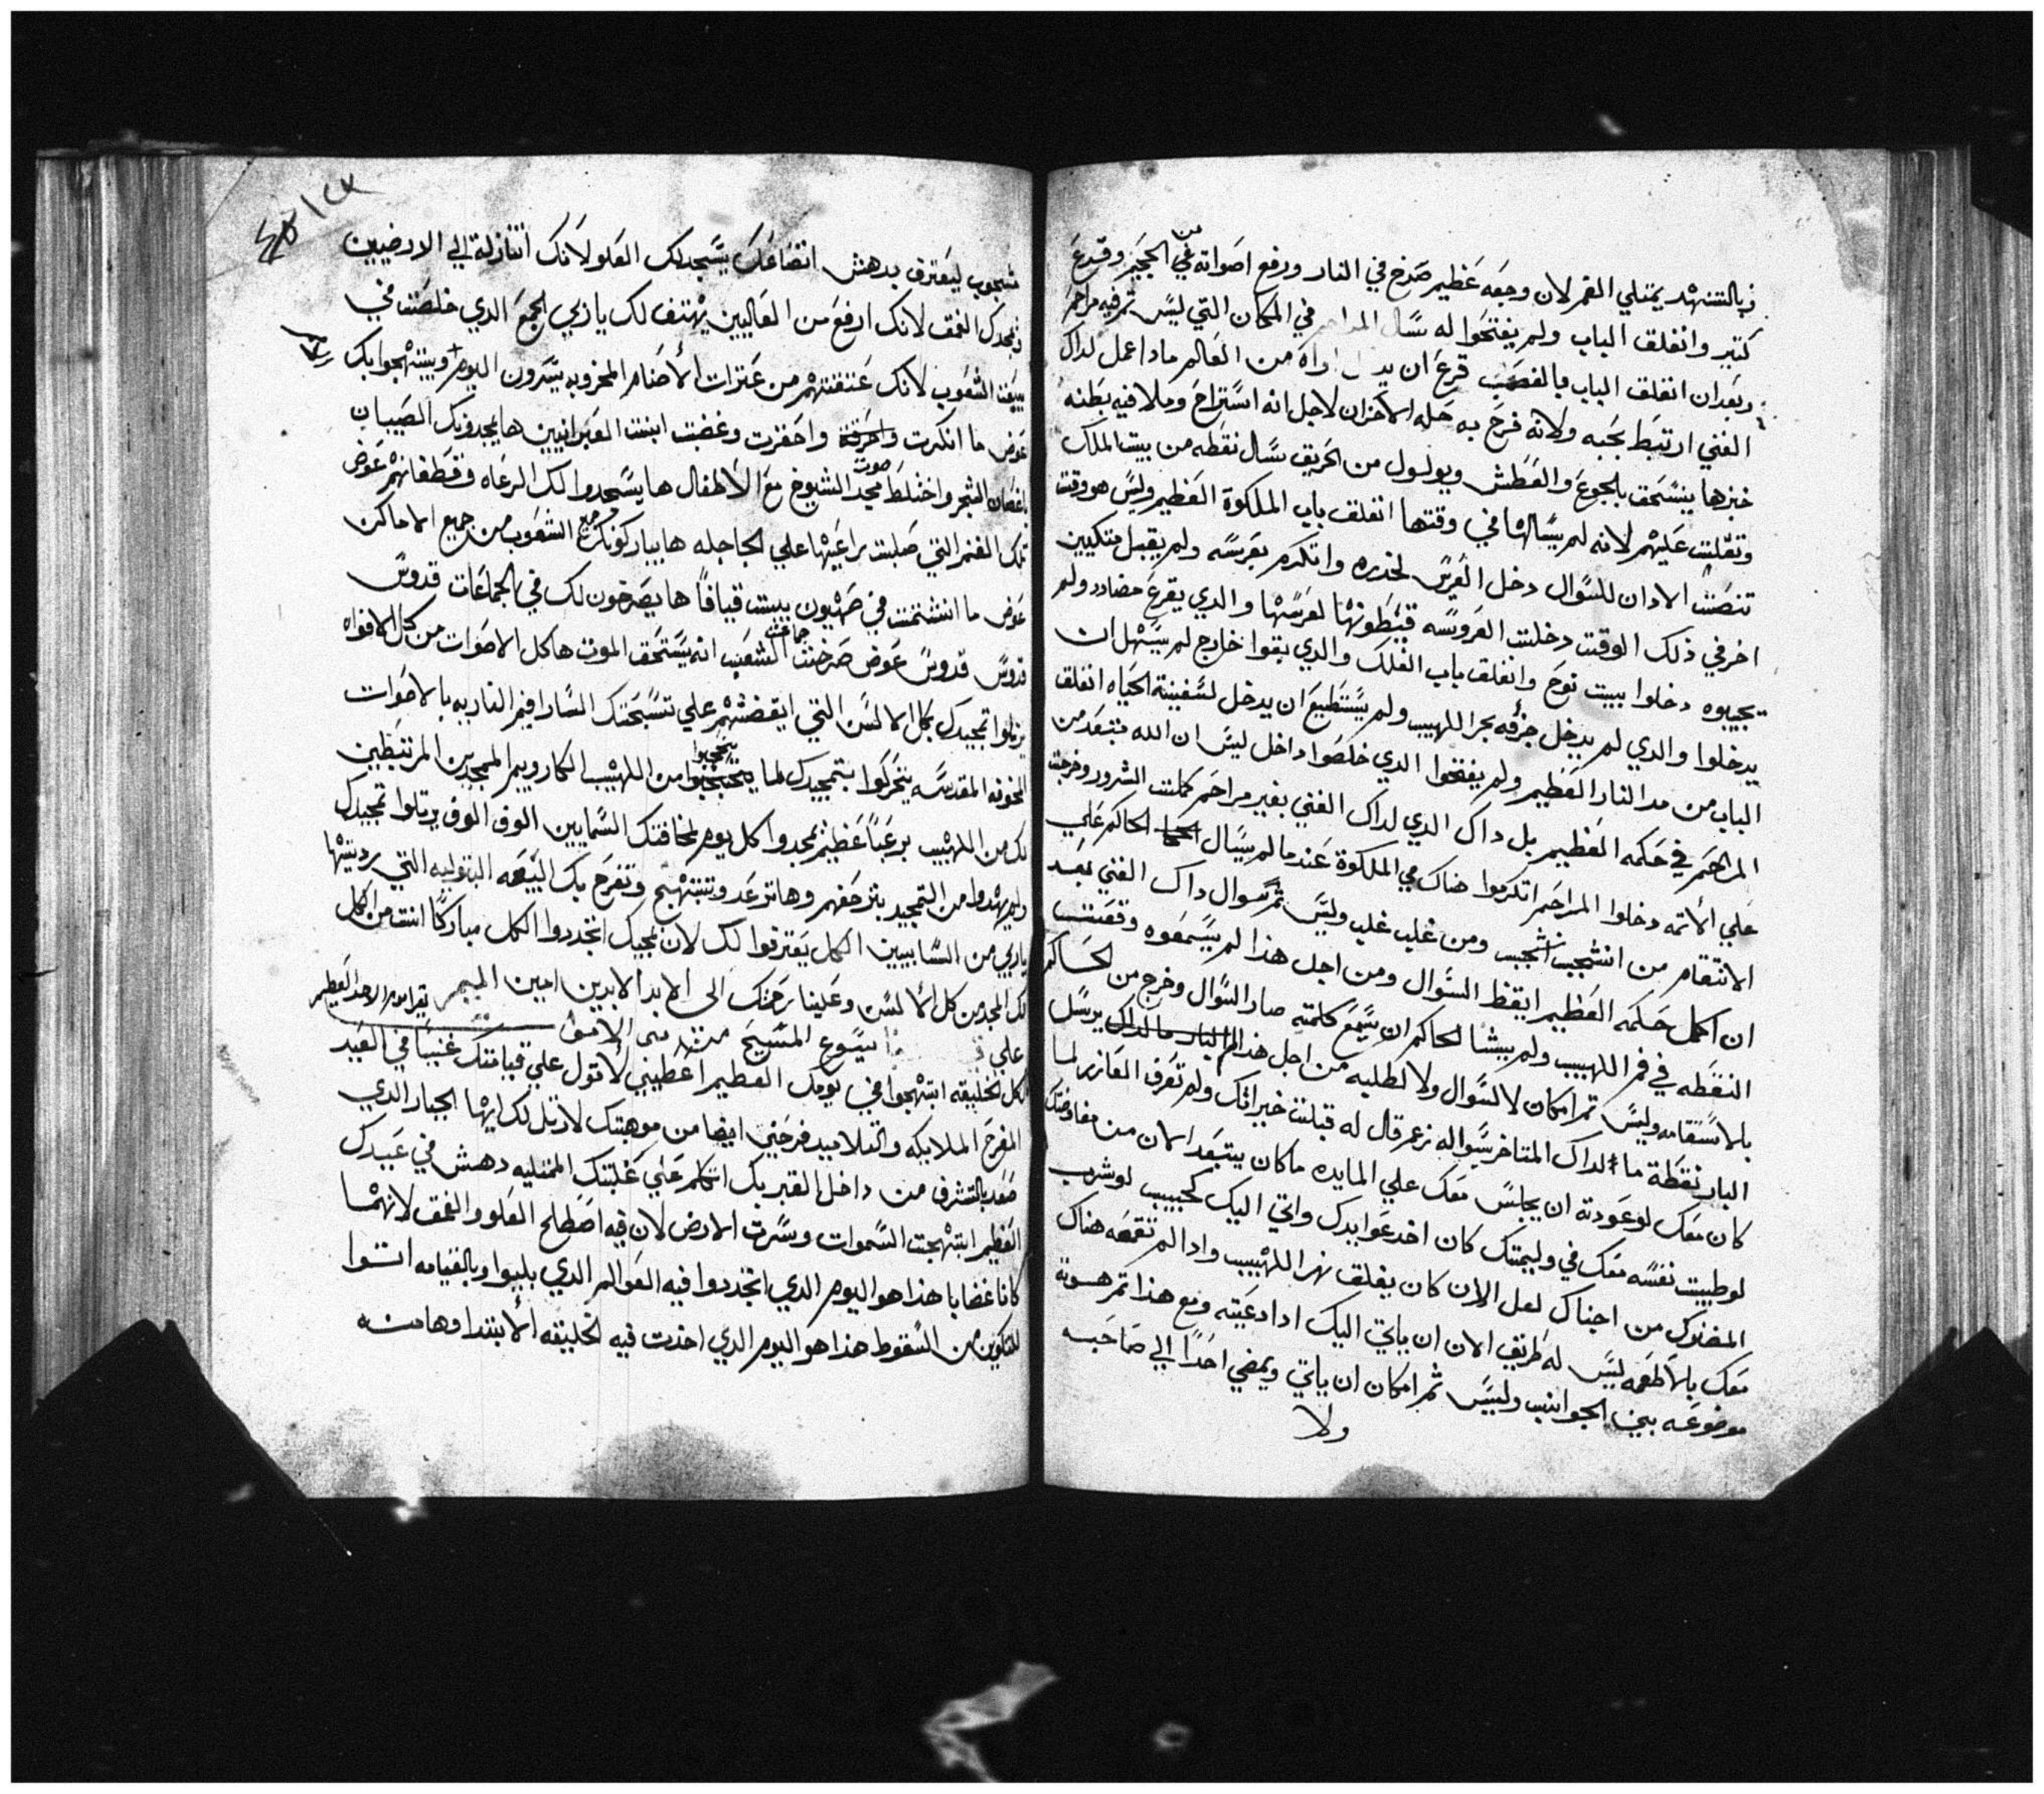 وبالتنهد يمتلي الفم لان وجعه عظيم صرخ في النار ورفع اصواته في الجحيم وقرع
كتير وانغلق الباب ولم يفتحوا له سال المراحم في المكان التي ليس تم فيه مراحم
وبعد ان انغلق الباب بالغضب قرع ان من العالم مادا عمل لداك
الغني ارتبط بجبه ولانه فرح به حله الاحزان لاجل انه استراح وملا فيه بطنه
خبزها ينسحق بالجوع والعطش ويولول من الحريق سال نقطه من بيت الملك
وتقلت عليهم لانه لم يسالها في وقتها انغلق باب الملكوة العظيم وليس هو وقت
تنصت الادان للسوال دخل العريس لخدره واتكرم بعرسه ولم يقبل متكيين
اخر في ذلك الوقت دخلت العروسه قيطونها لعرسها والدي يقرع مضادد ولم
تجيبوه دخلوا ببيت نوح وانغلق باب الفلك والدي بقوا خارج لم يسهل ان
يدخلوا والدي لم يدخل جرفه بحر اللهيب ولم يستطيع ان يدخل لسفينة الحياه انغلق
الباب من مد النار العظيم ولم يفتحوا الدي خلصوا داخل ليس ان الله مبتعد من
المراحم في حكمه العظيم بل داك الدي لداك الغني بغير مراحم كملت الشرور وخرجت
علي الاتمه دخلوا المراحم اتكرموا هناك في الملكوة عندما لم يسال الحاكم علي
الانتقام من انشجب انشجب ومن غلب غلب وليس تم سوال داك الغني بعد
ان اكمل حكمه العظيم ايقظ السوال ومن اجل هذا لم يسمعوه وقعت
النقطه في فم اللهيب ولم يشا الحاكم ان يسمع كلمته صار السوال وخرج من الحاكم
بالاستقامه وليس تم امكان لا للسوال ولا لطلبه من اجل هذا يرسل
البار نقطة ما لداك المتاخر سواله زعم قال له قبلت خيراتك ولم تعرف العازر لما
كان معك لو عودته ان يجلس معك علي المايده ما كان يبتعد الان من مفاوضتك
لو طيبت نفسه معك في وليمتك كان اخد عوايدك واتي اليك كحبيب لو شرب
المضنوك من اجناك لعل الان كان يغلق نهر اللهيب وادا لم تنقصه هناك
معك بالاطعمه ليس له طريق الان ان ياتي اليك ادا دعيته ومع هذا تم هوة
موضوعه بين الجوانب وليس تم امكان ان ياتي ويمضي احدا الي صاحبه
ولا
شعوب ليعترف بدهش اتضاعك يسجد لك العلو لانك اتنازلة الي الارضيين
يمجدك العمق لانك ارفع من العاليين يهتف لك يا زي الجمع الدي خلصت في
بيعت الشعوب لانك عتقتهم من عترات الاصنام المخزيه يسرون اليوم ويبتهجوا بك
عوض ما انكرت واحقرت وغضبت ابنت العبرانيين ها يمجدونك الصبيان
باغصان الشجر واختلط صوت مجد الشيوخ مع الاطفال ها يسجدوا لك الرعاه وقطعانهم عوض
تلك الغنم التي صلبت راعيها علي الجاجله ها يباركونك جميع الشعوب من جميع الاماكن
عوض ما انشتمت في صهيون ببيت قيافا ها يصرخون لك في الجماعات قدوس
قدوس قدوس عوض صرخت جماعت الشعب انه يستحق الموت ها كل الاصوات من كل الافواه
يرتلوا تمجيدك بكل الالسن التي ايقضتهم علي تسبحتك السارافيم الناريه بالاصوات
المخوفه المقدسه يتحركوا بتمجيدك لما يتحجبوا من اللهيب الكاروبيم الممجدين المرتبطين
لك من اللهيب برعبا عظيم يمجدوا كل يوم لمخافتك السمايين الوف الوف يرتلوا تمجيدك
ولم يهدوا من التمجيد بتزحفهم وها ترعد وتبتهج وتفرح بك البيعه البتوليه التي رديتها
ياربي من السابيين الكل يعترفوا لك لان بمجيك اتجددوا الكل مباركا انت من الكل
لك المجد من كل الالسن وعلينا رحمتك الى الابد الابدين امين الميمر يقرا يوم الاحد العظيم
علي يسوع المسيح من الاموات
كل الخليقه ابتهجوا في يومك العظيم اعطيني لاقول علي قيامتك عنيبا في العيد
المفرح الملايكه والتلاميد فرحني ايضا من موهبتك لارتل لك ايها الجبار الدي
صعد بالتشرف من داخل القبر بك اتكلم علي غلبتك الممتليه دهش في عبيدك
العظيم ابتهجت السموات وسرت الارض لان فيه اصطلح العلو والعمق لانهما
كانا غضابا هذا هو اليوم الدي اتجددوا فيه العوالم الدي بليوا وبالقيامه اتوا
للتكوين من السقوط هذا هو اليوم الدي اخدت فيه الخليقه الابتدا وها منه